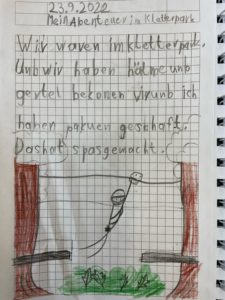 23.9.2022
Mein Abenteuer im Kletterpark
Wir waren im kletterpark.
Unb wir haben hälme unb
gertel bekomen unb ich
haben geschaft.
Das hat spas gemacht.